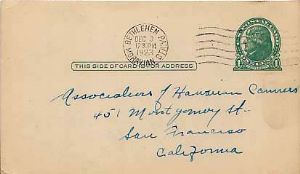 BETHLEHEM, PA.
DEC 3
12 30 PM
1923
THIS SIDE OF CARD IS FOR ADDRESS
Association of Hawaiian Canners
451 Montgomery St.
San Francisco
California